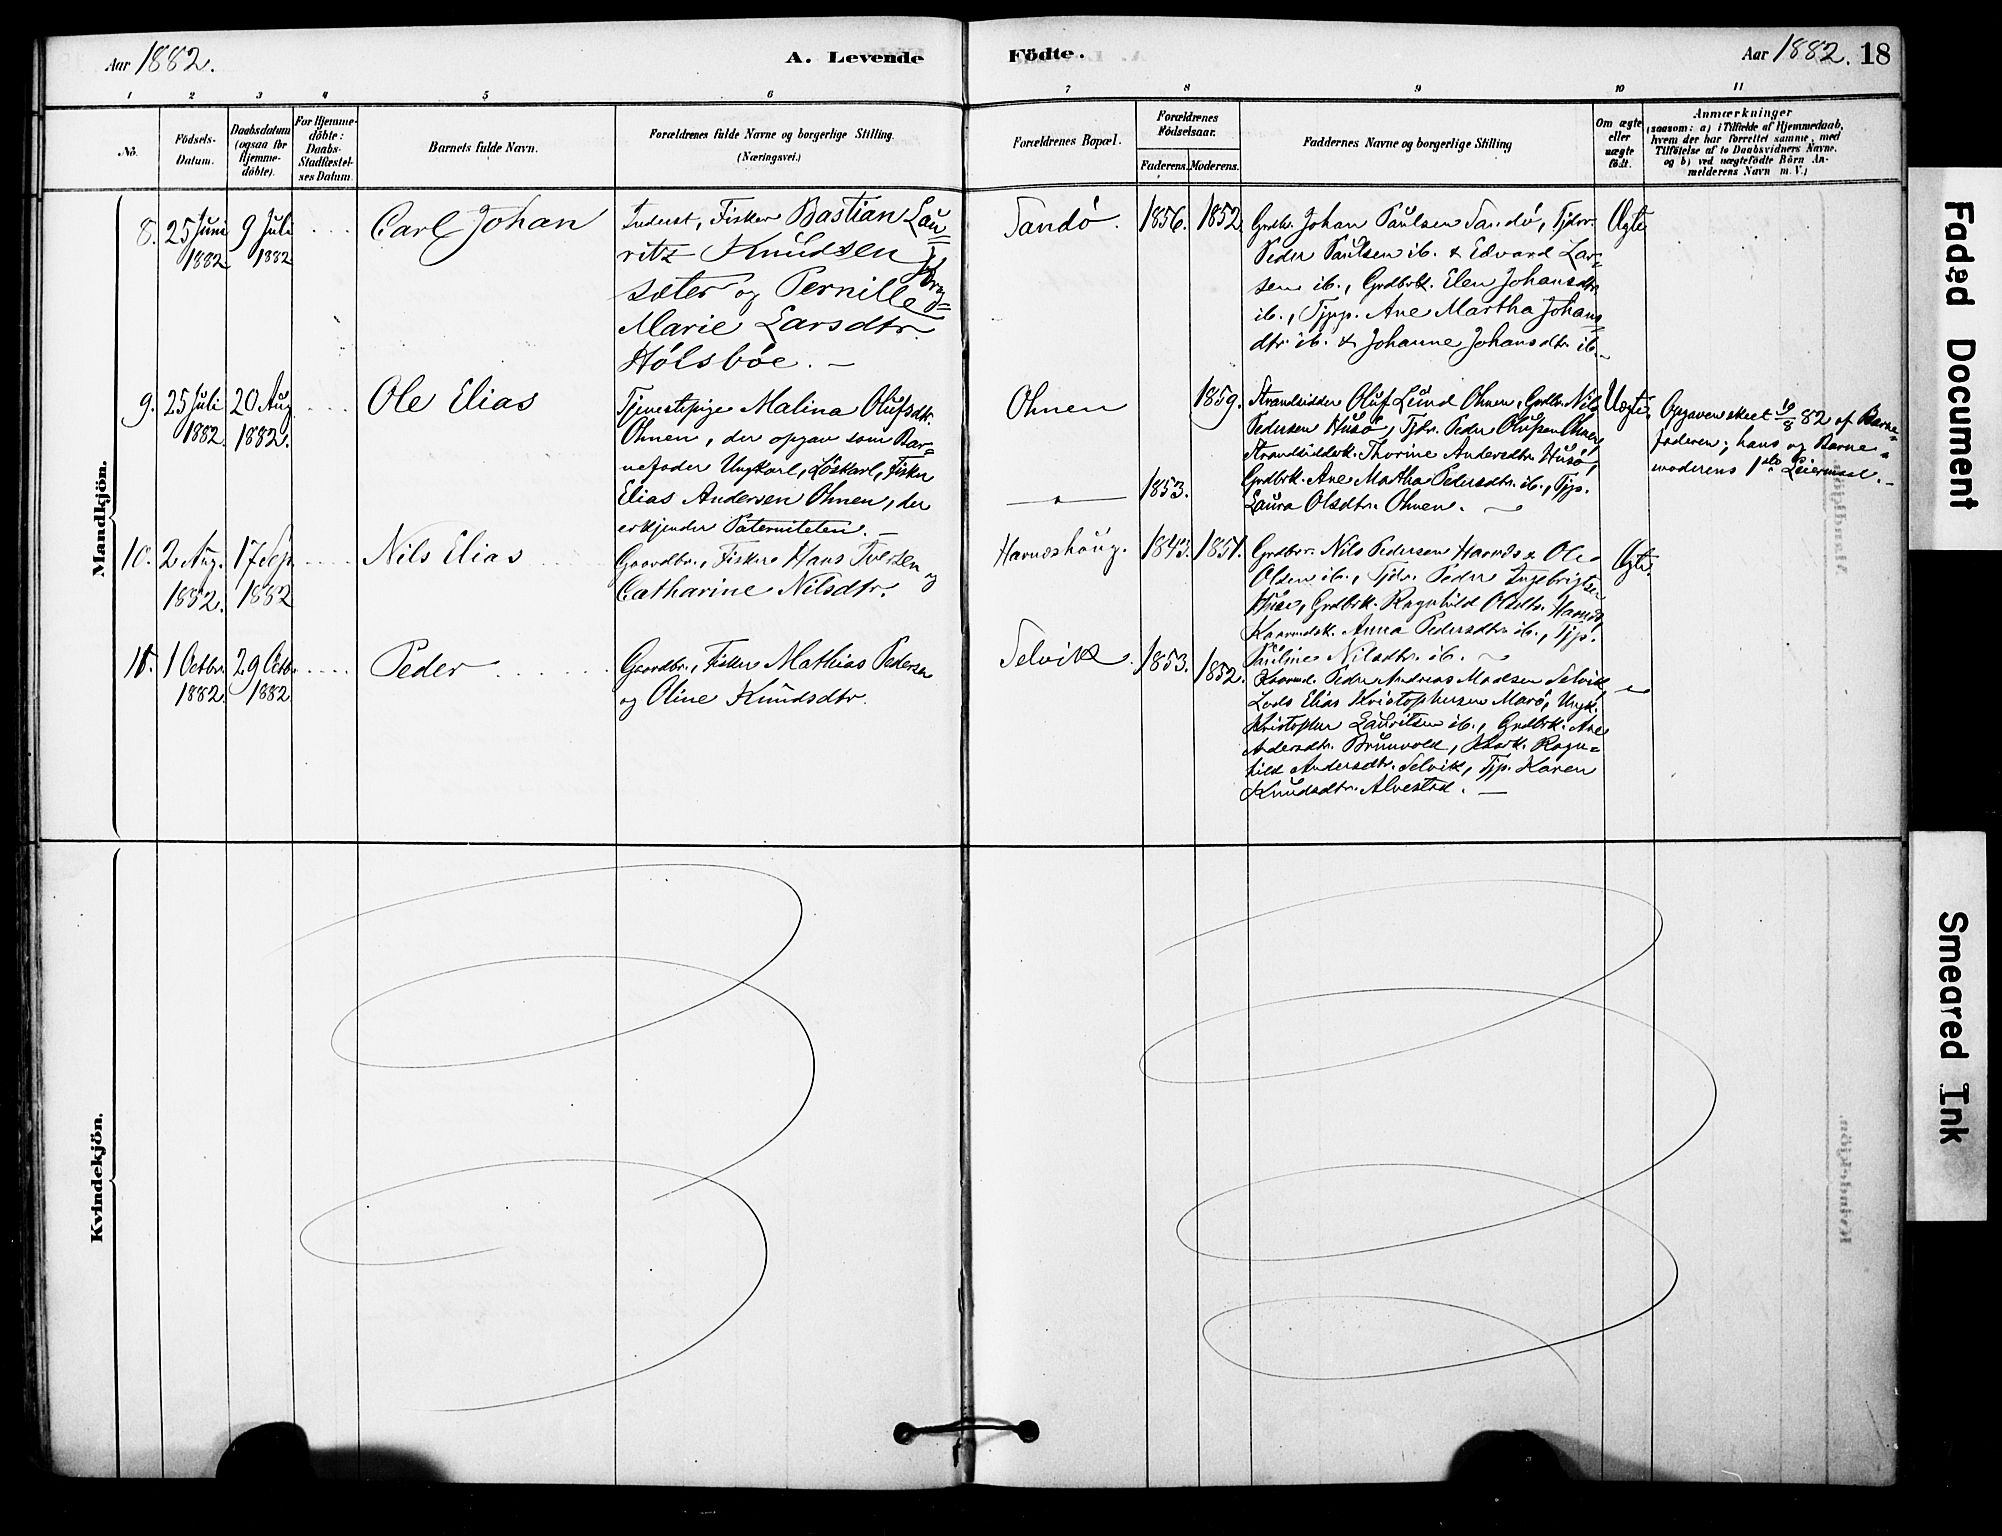 Aar 1882.
A. Levende
Födte.
Aar 1882. 18
1 2 3 4 5 6 7 8 9 10 11
No.
Födsels-
Datum.
Daabsdatum
(ogsaa for
Hjemme-
döbte).
For Hjemme-
döbte:
Daabs-
Stadfæstel-
ses Datum.
Barnets fulde Navn.
Forældrenes fulde Navne og borgerlige Stilling.
(Næringsvei.)
Forældrenes Bopæl.
Forældrenes
Födselsaar.
Faderens. Moderens.
Faddernes Navne og borgerlige Stilling
Om ægte
eller
uægte
födt.
Anmærkninger
(saasom: a) i Tilfælde af Hjemmedaab,
hvem der har forrettet samme, med
Tilföielse af to Daabsvidners Navne.
og b) ved uægtefödte Börn An-
melderens Navn m. V.)
Mandkjön.
8.
25 Juni
1882
9 Juli
1882
Carl Johan
Inderst, Fisker Bastian Lau=
ritz Knudsen
sæter og Pernille
Marie Larsdtr.
Holsböe. —
Sandö.
1856. 1852
Grdbr. Johan Paulsen Sandö, Tjdr.
Peder Paulsen ib. & Edvard Lar=
sen ib., Grdbrk. Elen Johansdtr
ib., Tjpp. Ane Martha Johans
dtr ib. & Johanne Johansdtr ib.
Ægte
9.
25 Juli
1882.
20 Aug
1882.
Ole Elias
Tjenestepige Malina Olufsdtr.
Ohnen, der opgav som Bar=
nefader Ungkarl, Löskarl, Fisker
Elias Andersen Ohnen, der
erkjender Paterniteten. —
Ohnen
1859.
1853.
Strandsidder Oluf Lund Ohnen, Grdbr. Nils
Pedersen Husö, Tjdr. Peder Olufsen Ohnen,
Strandsidderk. Thorine Andersdtr. Husö,
Grdbrk. Ane Martha Pedersdtr. ib., Tjp.
Laura Olsdtr. Ohnen. —
Uægte.
Opgaven skeet 10/8 82 af Barne=
faderen; hans og Barne=
moderens 1ste Leiermaal. —
10.
2 Aug.
1882.
17 Sep.
1882
Nils Elias
Gaardbr., Fisker Hans Iversen og
Catharine Nilsdtr.
Havnæshaug.
1843. 1851.
Grdbr. Nils Pedersen Havnæs & Ole
Olsen ib., Tjdr. Peder Ingebrigtsen
Huse, Grdbrk. Ragnhild Olsdtr. Havnæs,
Kaarmdsk. Anna Pedersdtr. ib., Tjp.
Pauline Nilsdtr. ib. —
Ægte.
11.
1 Octbr.
1882.
29 Octb.
1882
Peder
Gaardbr., Fisker Mathias Pedersen
og Oline Knudsdtr.
Selvik.
1853. 1852.
Kaarmd. Peder Andreas Madsen Selvik
Lods Elias Kristophersen Marö, Ungk.
Kristopher Lauritsen ib., Grdbrk. Ane
Andersdtr. Brunvold, Kaark. Ragn=
hild Andersdtr. Selvik, Tjp. Karen
Knudsdtr. Alvestad. —
Kvindekjön.
Faded Document
Smeared Ink